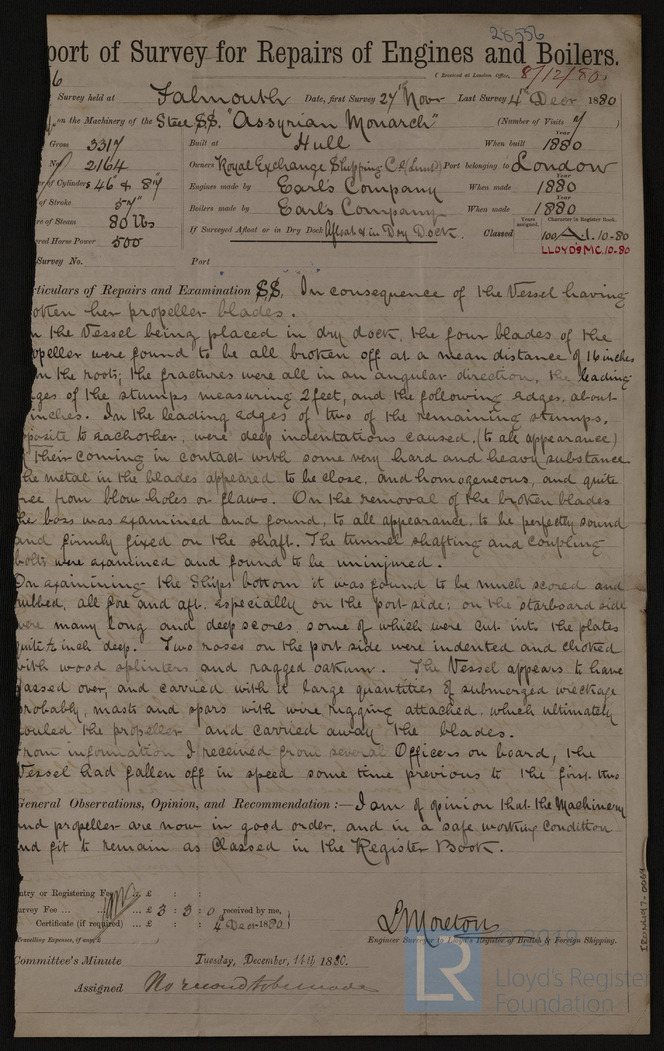 28556
port of Survey for Repairs of Engines and Boilers.
(Received at London Office, 8/12/80
6
Survey held at Falmouth Date, first Survey 27th Novr Last Survey 4th Decr 1880
on the Machinery of the Steel SS. "Assyrian Monarch" (Number of Visits 7)
Gross 3317 Built at Hull When built Year 1880
2164 Owners Royal Exchange Shipping Co (Limd) Port belonging to London
of Cylinders 46" & 87" Engines made by Earl's Company When made Year 1880
of Stroke 57" Boilers made by Earl's Company When made Year 1880
re of Steam 80 lbs If Surveyed Afloat or in Dry Dock Afloat & in Dry Dock. Classed Years assigned. 100 Character in Register Book. A.1. 10-80
Horse Power 500 LLOYD'S M.C. 10-80
Survey No. Port
rticulars of Repairs and Examination SS. In consequence of the Vessel having
broken her propeller blades.
n the Vessel being placed in dry dock, the four blades of the
opeller were found to be all broken off at a mean distance of 16 inches
m the roots; the fractures were all in an angular direction, the leading
ges of the stumps measuring 2 feet, and the following edges, about
inches. In the leading edges of two of the remaining stumps,
pposite to eachother, were deep indentations caused, (to all appearance)
their coming in contact with some very hard and heavy substance.
The metal in the blades appeared to be close, and homogeneous, and quite
ree from blow holes or flaws. On the removal of the broken blades
the boss was examined and found, to all appearance, to be perfectly sound
and firmly fixed on the shaft. The tunnel shafting and coupling
bolts were examined and found to be uninjured.
On examining the Ships' bottom it was found to be much scored and
rubbed, all fore and aft, especially on the port side; on the starboard side
were many long and deep scores some of which were cut into the plates
quite inch deep. Two roses on the port side were indented and choked
with wood splinters and ragged oakum. The Vessel appears to have
passed over, and carried with it large quantities of submerged wreckage
probably, masts and spars with wire rigging attached, which ultimately
fouled the propeller and carried away the blades.
From information I received from several Officers on board, the
Vessel had fallen off in speed some time previous to the first two
General Observations, Opinion, and Recommendation :— I am of opinion that the Machinery
and propeller are now in good order, and in a safe working condition
and fit to remain as Classed in the Register Book.
ntry or Registering Fee ... £ : :
urvey Fee ... £ 3 : 3 : 0 received by me,
Certificate (if required) ... £ : : 4th Decr 1880
Travelling Expenses, if any, £
L Moreton
Engineer Surveyor to Lloyd's Register of British & Foreign Shipping.
Committee's Minute Tuesday, December, 14th 1880.
Assigned No record to be made
IRON497-0069
© 2019
LR
Lloyd's Register
Foundation